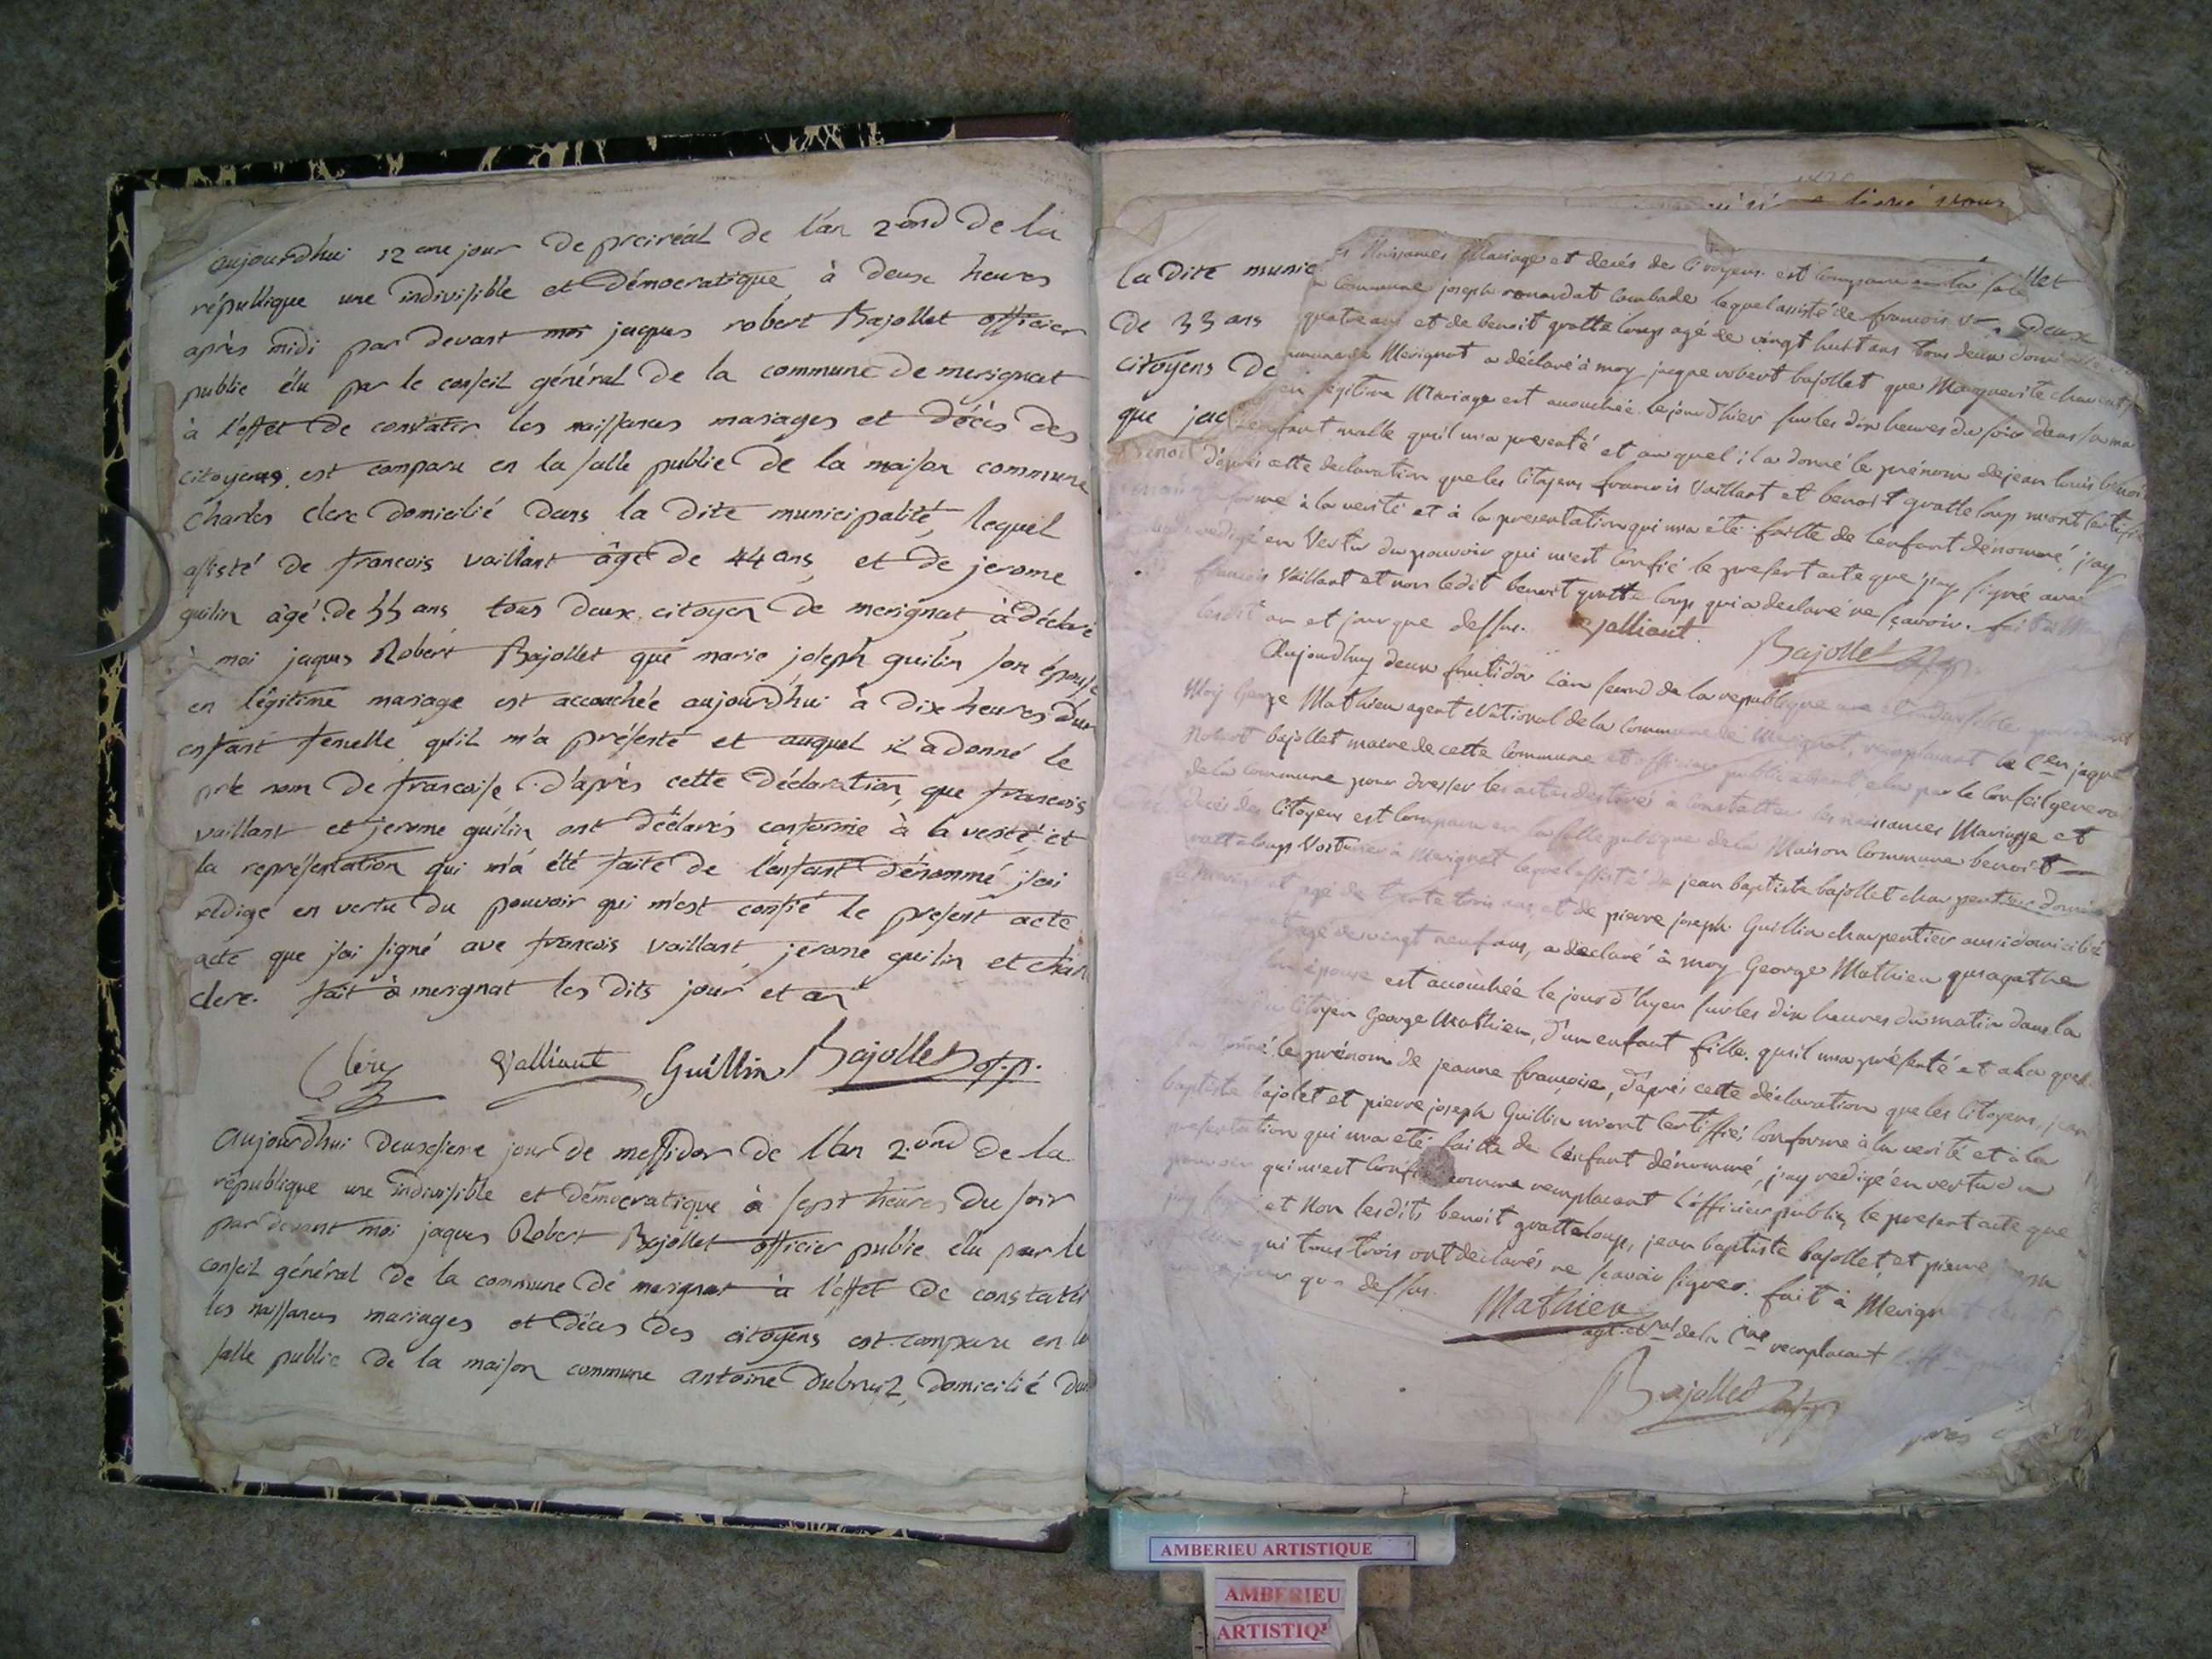 aujourdhui 12 eme jour de preireal de l'an 2ond de la
république une indivisible et démocratique, à deux heures
après midi par devant moi jaques robert Bajollet officier
public élu par le conseil général de la commune de merignat
à l'effet de constater les naissances mariages et décès des
citoyens, est comparu en la salle public de la maison commune
Charles clerc domicilié dans la dite municipalité, lequel
assisté de francois vaillant âgé de 44 ans, et de jerome
guilin âgé de 33 ans tous deux citoyen de merignat à déclaré
à moi jaques Robert Bajollet que marie joseph guilin son épouse
en légitime mariage est accouchée aujourd'hui à dix heures d'un
enfant femelle qu'il m'a présenté et auquel il a donné le
nom de francoise. d'après cette déclaration, que francois
vaillant et jerome guilin ont déclarés conforme à la verité et
la représentation qui m'a été faite de l'enfant dénommé j'ai
rédigé en vertu du pouvoir qui m'est confié le present acte
acte que j'ai signé ave francois vaillant, jerome guilin et char
clerc. fait à merignat les dits jour et an
Clerc Valliant Guillin Bajollet of.p.
aujourdhui deuxsieme jour de messidor de l'an 2.ond de la
république une indivisible et démocratique à sept heures du soir
par devant moi jaques Robert Bajollet officier public élu par le
conseil général de la commune de merignat à l'effet de constater
les naissances mariages et décès des citoyens est comparu en la
salle public de la maison commune antoine dubruil, domicilié dans
la dite munic
de 33 ans
citoyens de
que jac
llet
deux
Naissances Mariage et decés des Citoyens est comparu la salle
commune joseph lequel assisté de francois
quatre ans et de benoit gratteloup agé de vingt huit ans tous deux
Merignat a déclaré à moy jacque robert bajollet que Marguerite
legitime Mariage est accouchée le jour d'hier sur les dix heures du soir dans sa
enfant malle qu'il m'a presenté et auquel il a donné le prénom de jean louis benoit
d'après cette declaration que les Citoyens francois Vaillant et benoit gratteloup m'ont
à la verité et à la presentation qui m'a été faitte de l'enfant dénommé, j'ay
redigé en Vertu du pouvoir qui m'est Confié le present acte que j'ay signé avec
francois Vaillant et non ledit benoit gratte loup qui a declaré ne sçavoir. fait à
lesdit an et jour que dessus. Valliant. Bajollet
Aujourdhuy deux fructidor l'an second de la republique une et indivisible
Moy George Mathieu agent National de la Commune de Merignat, remplacant le Cen jaque
Robert bajollet maire de cette Commune et officier public absent elu par le Conseil general
de la Commune pour dresser les actes destinés à Constatter les naissances Mariage et
decés des Citoyens est comparu en la salle publique de la Maison Commune benoit
gratteloup à Merignat lequel assisté de jean baptiste bajollet charpentier
agé de trente trois ans, et de pierre joseph Guillin charpentier aussi domicilié
agé de vingt neuf ans, a declaré à moy George Mathieu qu'agathe
son épouse est accouchée le jour d'hyer sur les dix heures du matin dans la
Citoyen George Mathieu, d'un enfant fille. qu'il m'a présenté et a la quel
donné le prénom de jeanne francoise, d'après cette déclaration que les Citoyens jean
baptiste bajolet et pierre joseph Guillin m'ont certiffiés conforme à la verité et à la
presentation qui m'a eté faitte de l'enfant dénommé, j'ay redigé en vertu du
pouvoir qui m'est Confié comme remplacant l'officier public, le present acte que
et Non lesdits benoit gratteloup, jean baptiste bajollet, et pierre
qui tous trois ont declarés ne scavoir signer. fait à Merignat
jour que dessus. Mathieu
agt. nal de la Cne remplacant
Bajollet
AMBERIEU ARTISTIQUE
AMBERIEU
ARTISTIQ